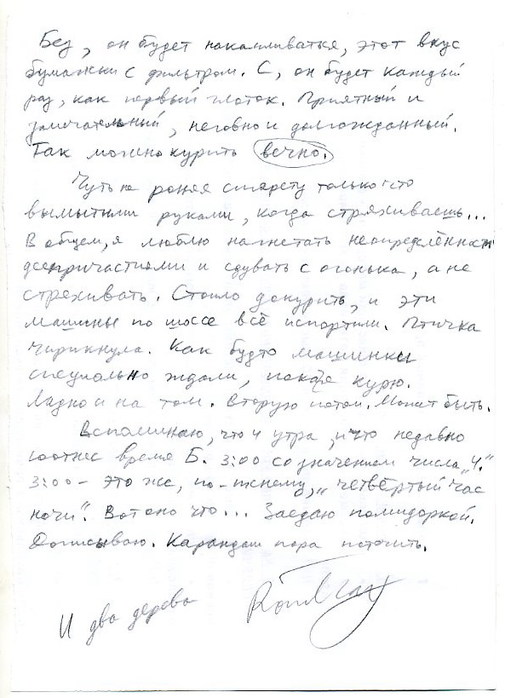 Без, он будет накапливаться, этот вкус
бумажки с фильтром. С, он будет каждый
раз, как первый глоток. Приятный и
замечательный, неговно и долгожданный.
Так можно курить вечно.
Чуть не роняя сигарету только что
вымытыми руками, когда стряхиваешь...
В общем, я люблю нагнетать неопределённость
деепричастиями и сдувать с огонька, а не
стрехивать. Стоило докурить, и эти
машины по шоссе всё испортили. Птичка
чирикнула. Как будто машинки
специально ждали, пока я курю.
Ладно и на том. Вторую потом. Может быть.
Вспоминаю, что 4 утра, и что недавно
соотнес время Б. 3:00 со значением числа „4."
3:00 - это же, по-твоему, „четвёртый час
ночи". Вот оно что... Заедаю помидоркой.
Дописываю. Карандаш пора поточить.
И два дерева